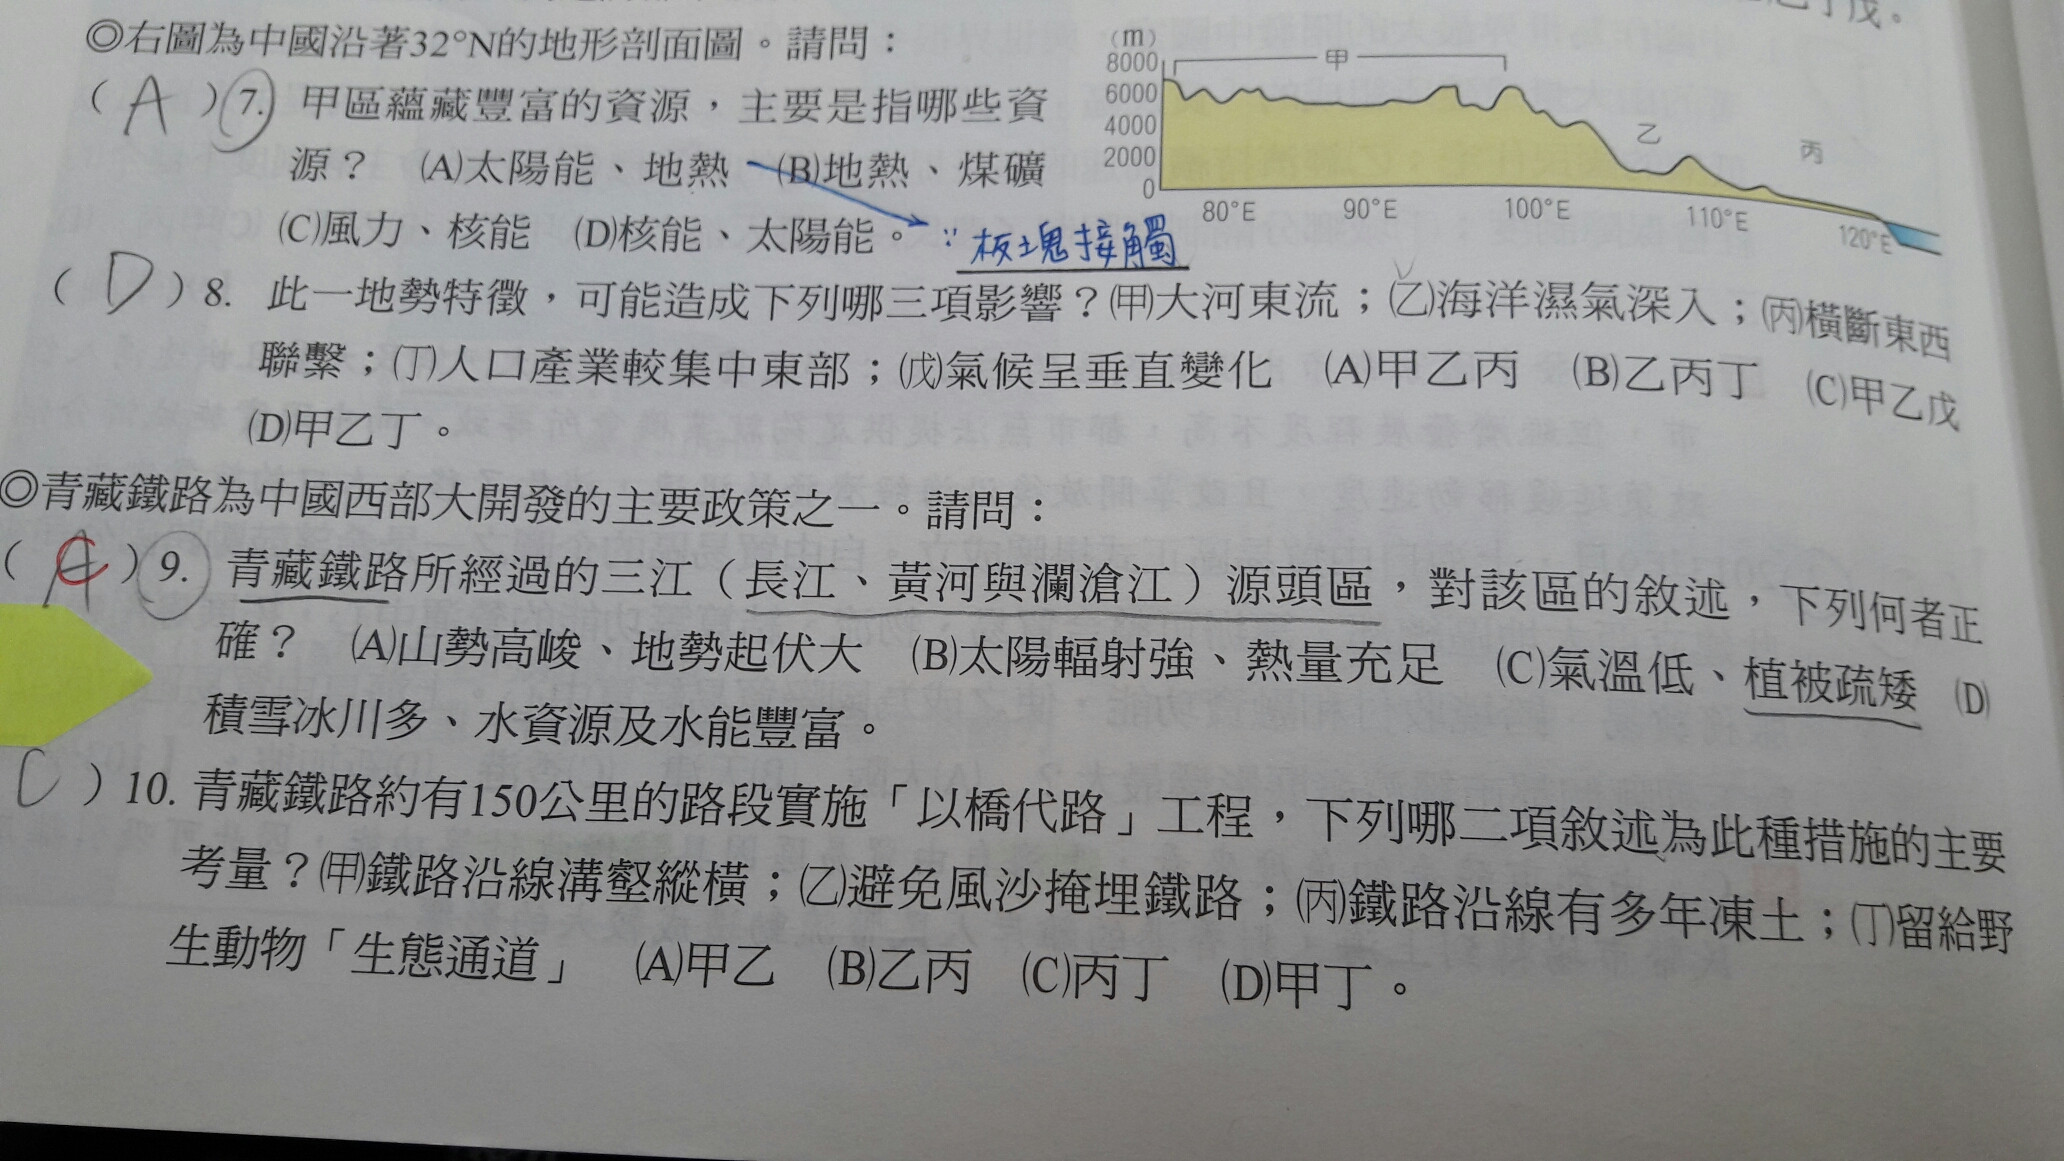 ◎右圖為中國沿著32°N的地形剖面圖。請問：
(A)7. 甲區蘊藏豐富的資源，主要是指哪些資
源？ (A)太陽能、地熱 (B)地熱、煤礦
(C)風力、核能 (D)核能、太陽能。
∵板塊接觸
(m)
8000
6000
4000
2000
0
甲
乙
丙
80°E 90°E 100°E 110°E 120°E
(D)8. 此一地勢特徵，可能造成下列哪三項影響？(甲)大河東流；(乙)海洋濕氣深入；(丙)橫斷東西
聯繫；(丁)人口產業較集中東部；(戊)氣候呈垂直變化 (A)甲乙丙 (B)乙丙丁 (C)甲乙戊
(D)甲乙丁。
◎青藏鐵路為中國西部大開發的主要政策之一。請問：
(C)9. 青藏鐵路所經過的三江（長江、黃河與瀾滄江）源頭區，對該區的敘述，下列何者正
確？ (A)山勢高峻、地勢起伏大 (B)太陽輻射強、熱量充足 (C)氣溫低、植被疏矮 (D)
積雪冰川多、水資源及水能豐富。
C)10. 青藏鐵路約有150公里的路段實施「以橋代路」工程，下列哪二項敘述為此種措施的主要
考量？(甲)鐵路沿線溝壑縱橫；(乙)避免風沙掩埋鐵路；(丙)鐵路沿線有多年凍土；(丁)留給野
生動物「生態通道」 (A)甲乙 (B)乙丙 (C)丙丁 (D)甲丁。